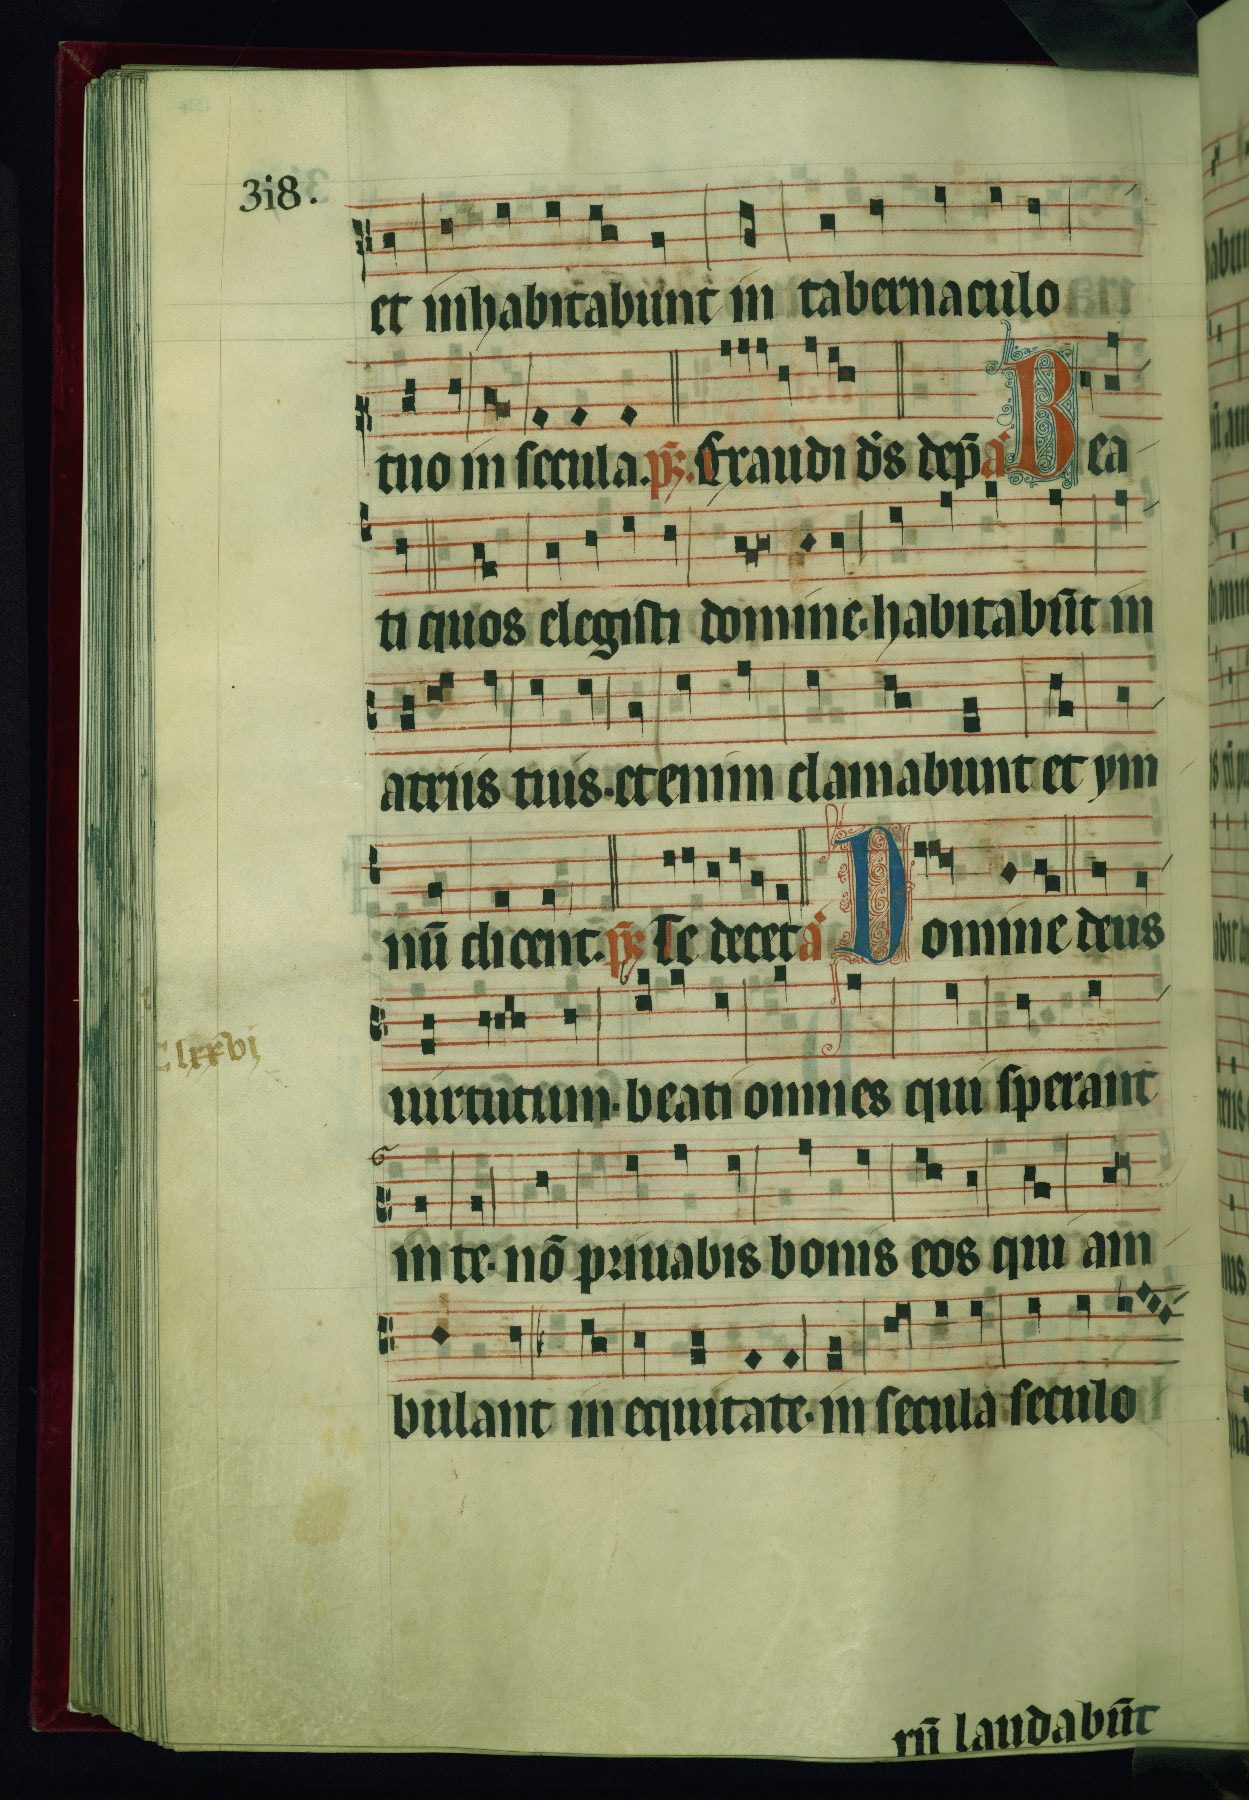 3i8.
et inhabitabunt in tabernaculo
tuo in secula. ps. Exaudi d̄s dep̄ a Bea
ti quos elegisti domine. habitabūt in
atriis tuis. etenim clamabunt et ym
nū dicent. ps Te decet a Domine deus
C lxxvj
uirtutum. beati omnes qui sperant
in te. nō priuabis bonis eos qui am
bulant in equitate. in secula seculo
rū laudabūt